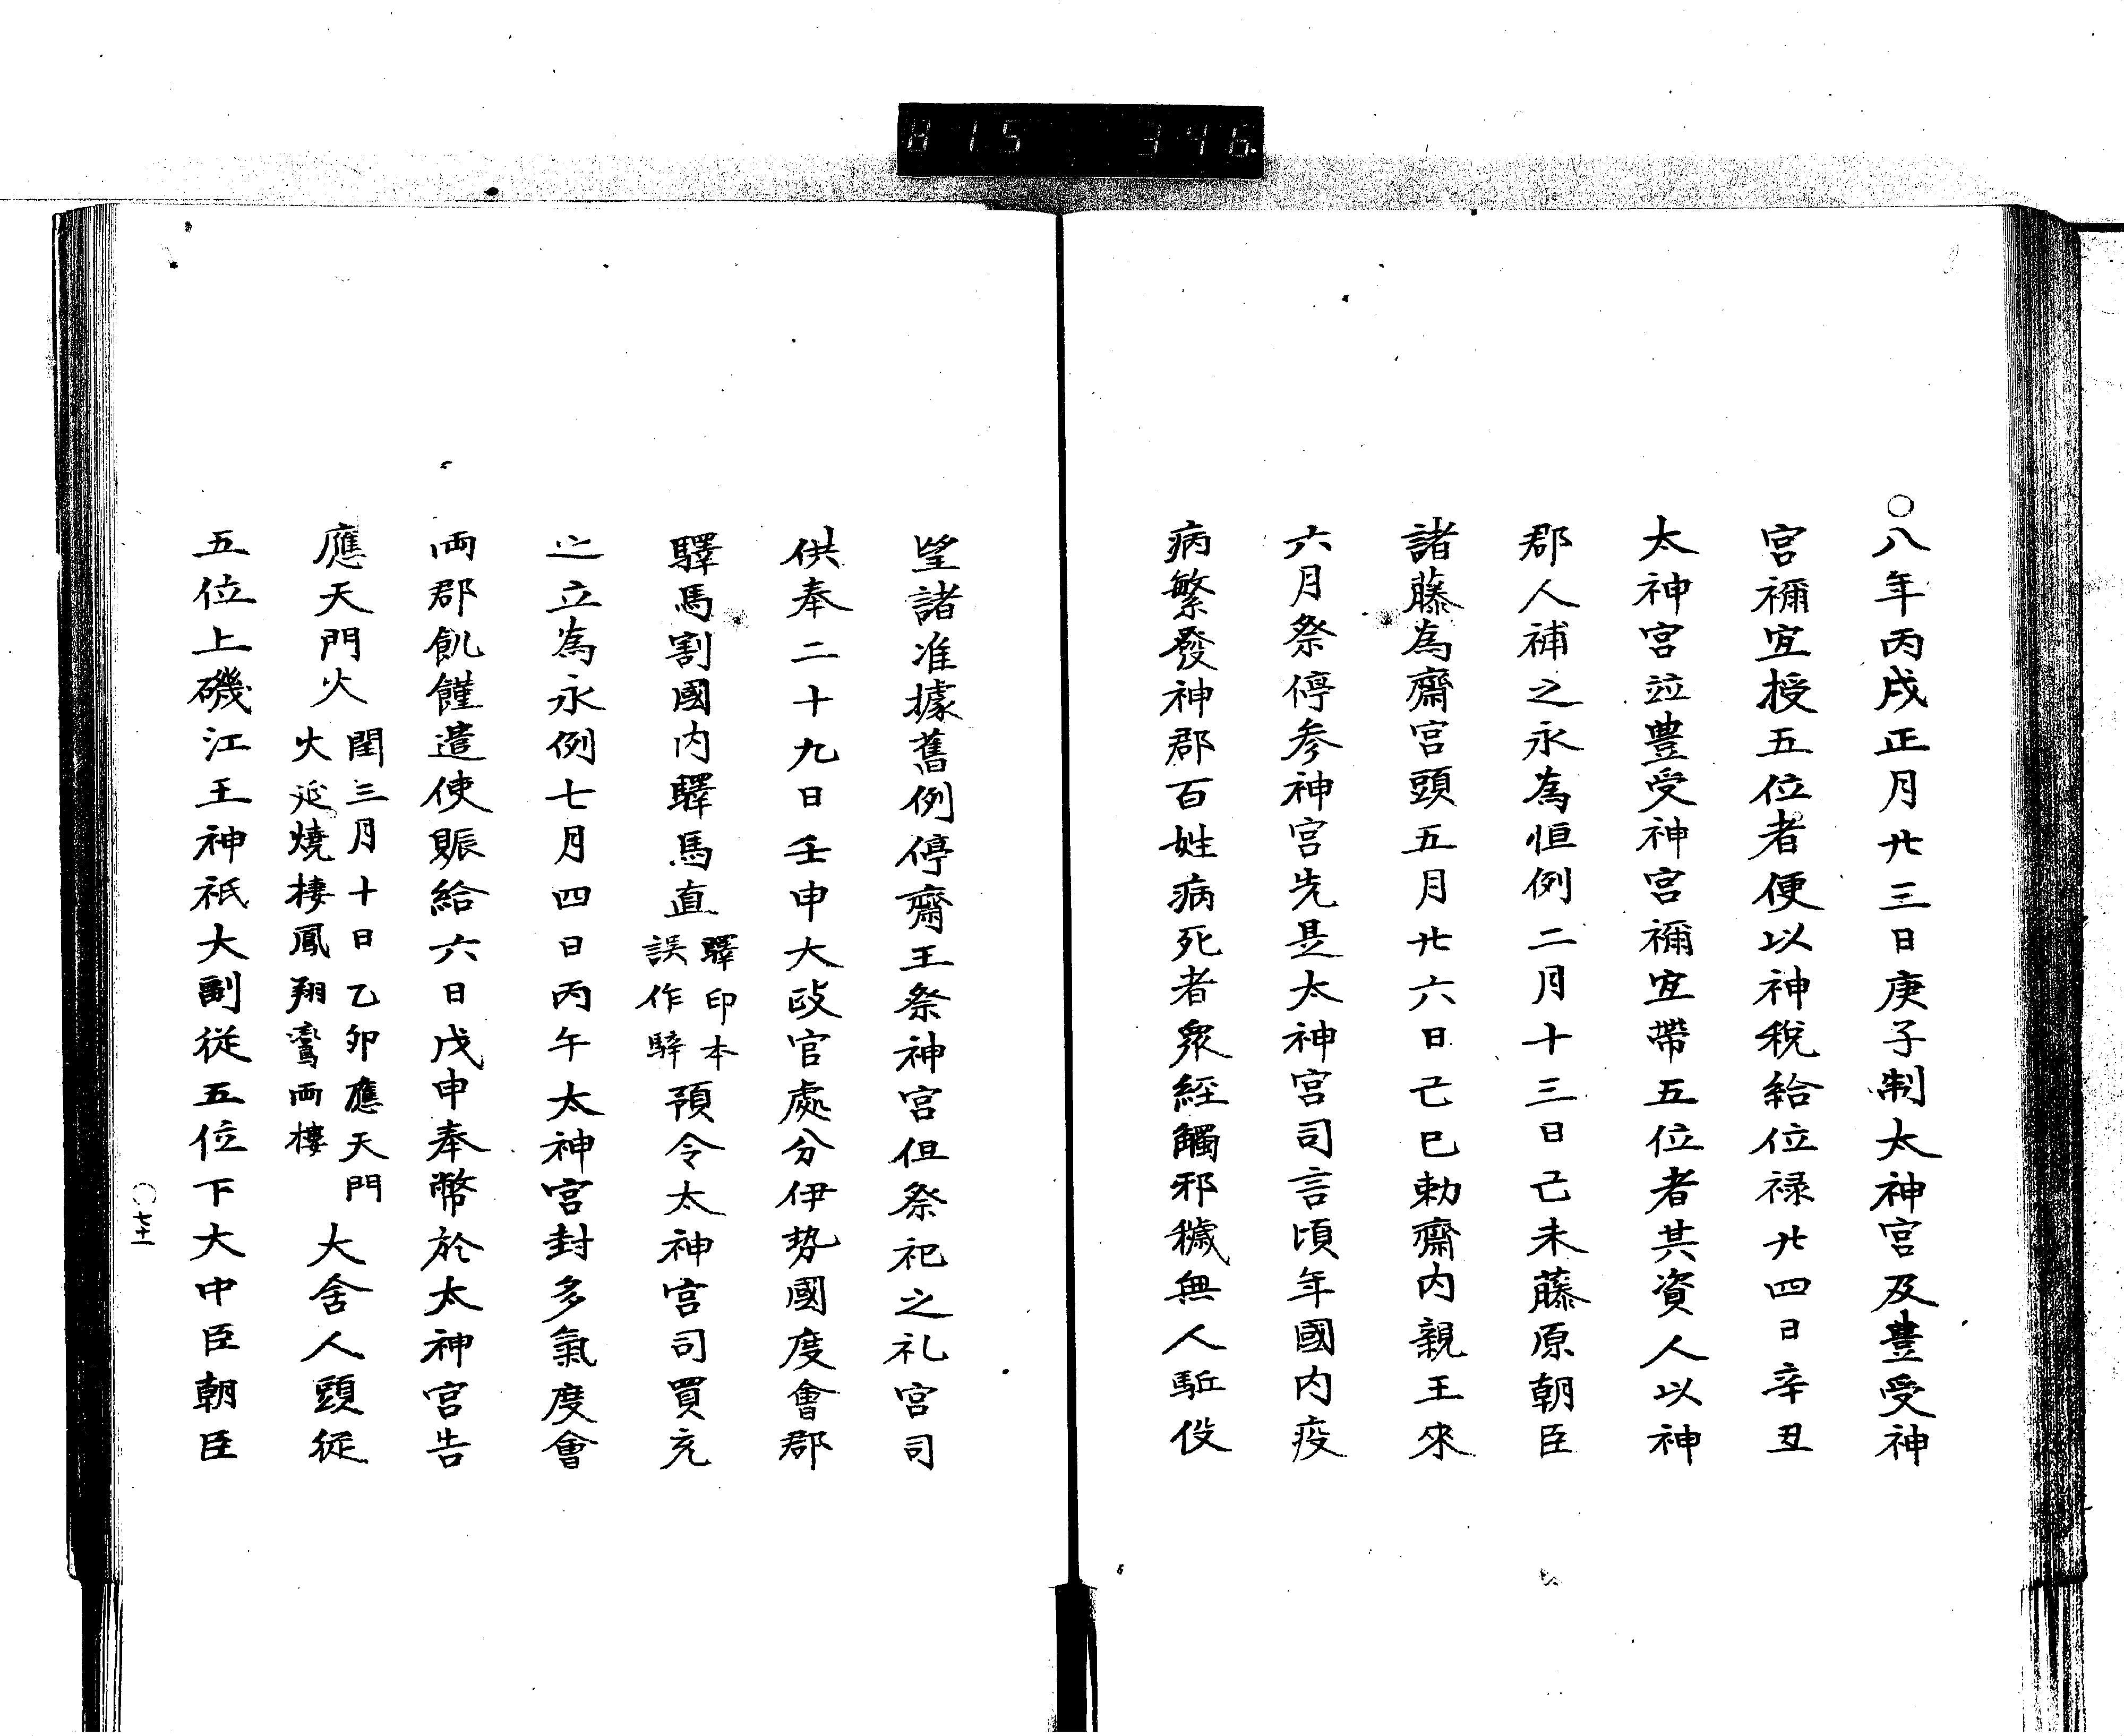 815 346
〇八年丙戌正月廿三日庚子制太神宮及豊受神
宮禰宜授五位者便以神税給位禄廿四日辛丑
太神宮並豊受神宮禰宜帶五位者其資人以神
郡人補之永為恒例二月十三日己未藤原朝臣
諸藤為齋宮頭五月廿六日己巳勅齋内親王來
六月祭停参神宮先是太神宮司言頃年國内疫
病繁發神郡百姓病死者衆經觸邪穢無人駈伇
望諸准據舊例停齋王祭神宮但祭祀之礼宮司
供奉二十九日壬申大政官處分伊勢國度會郡
驛馬割國内驛馬直
驛印本
誤作騂
預令太神宮司買充
之立為永例七月四日丙午太神宮封多氣度會
両郡飢饉遣使賑給六日戊申奉幣於太神宮告
應天門火
閏三月十日乙卯應天門
火延燒棲鳳翔鸞両樓
大舍人頭従
五位上礒江王神祇大副従五位下大中臣朝臣
〇七十一